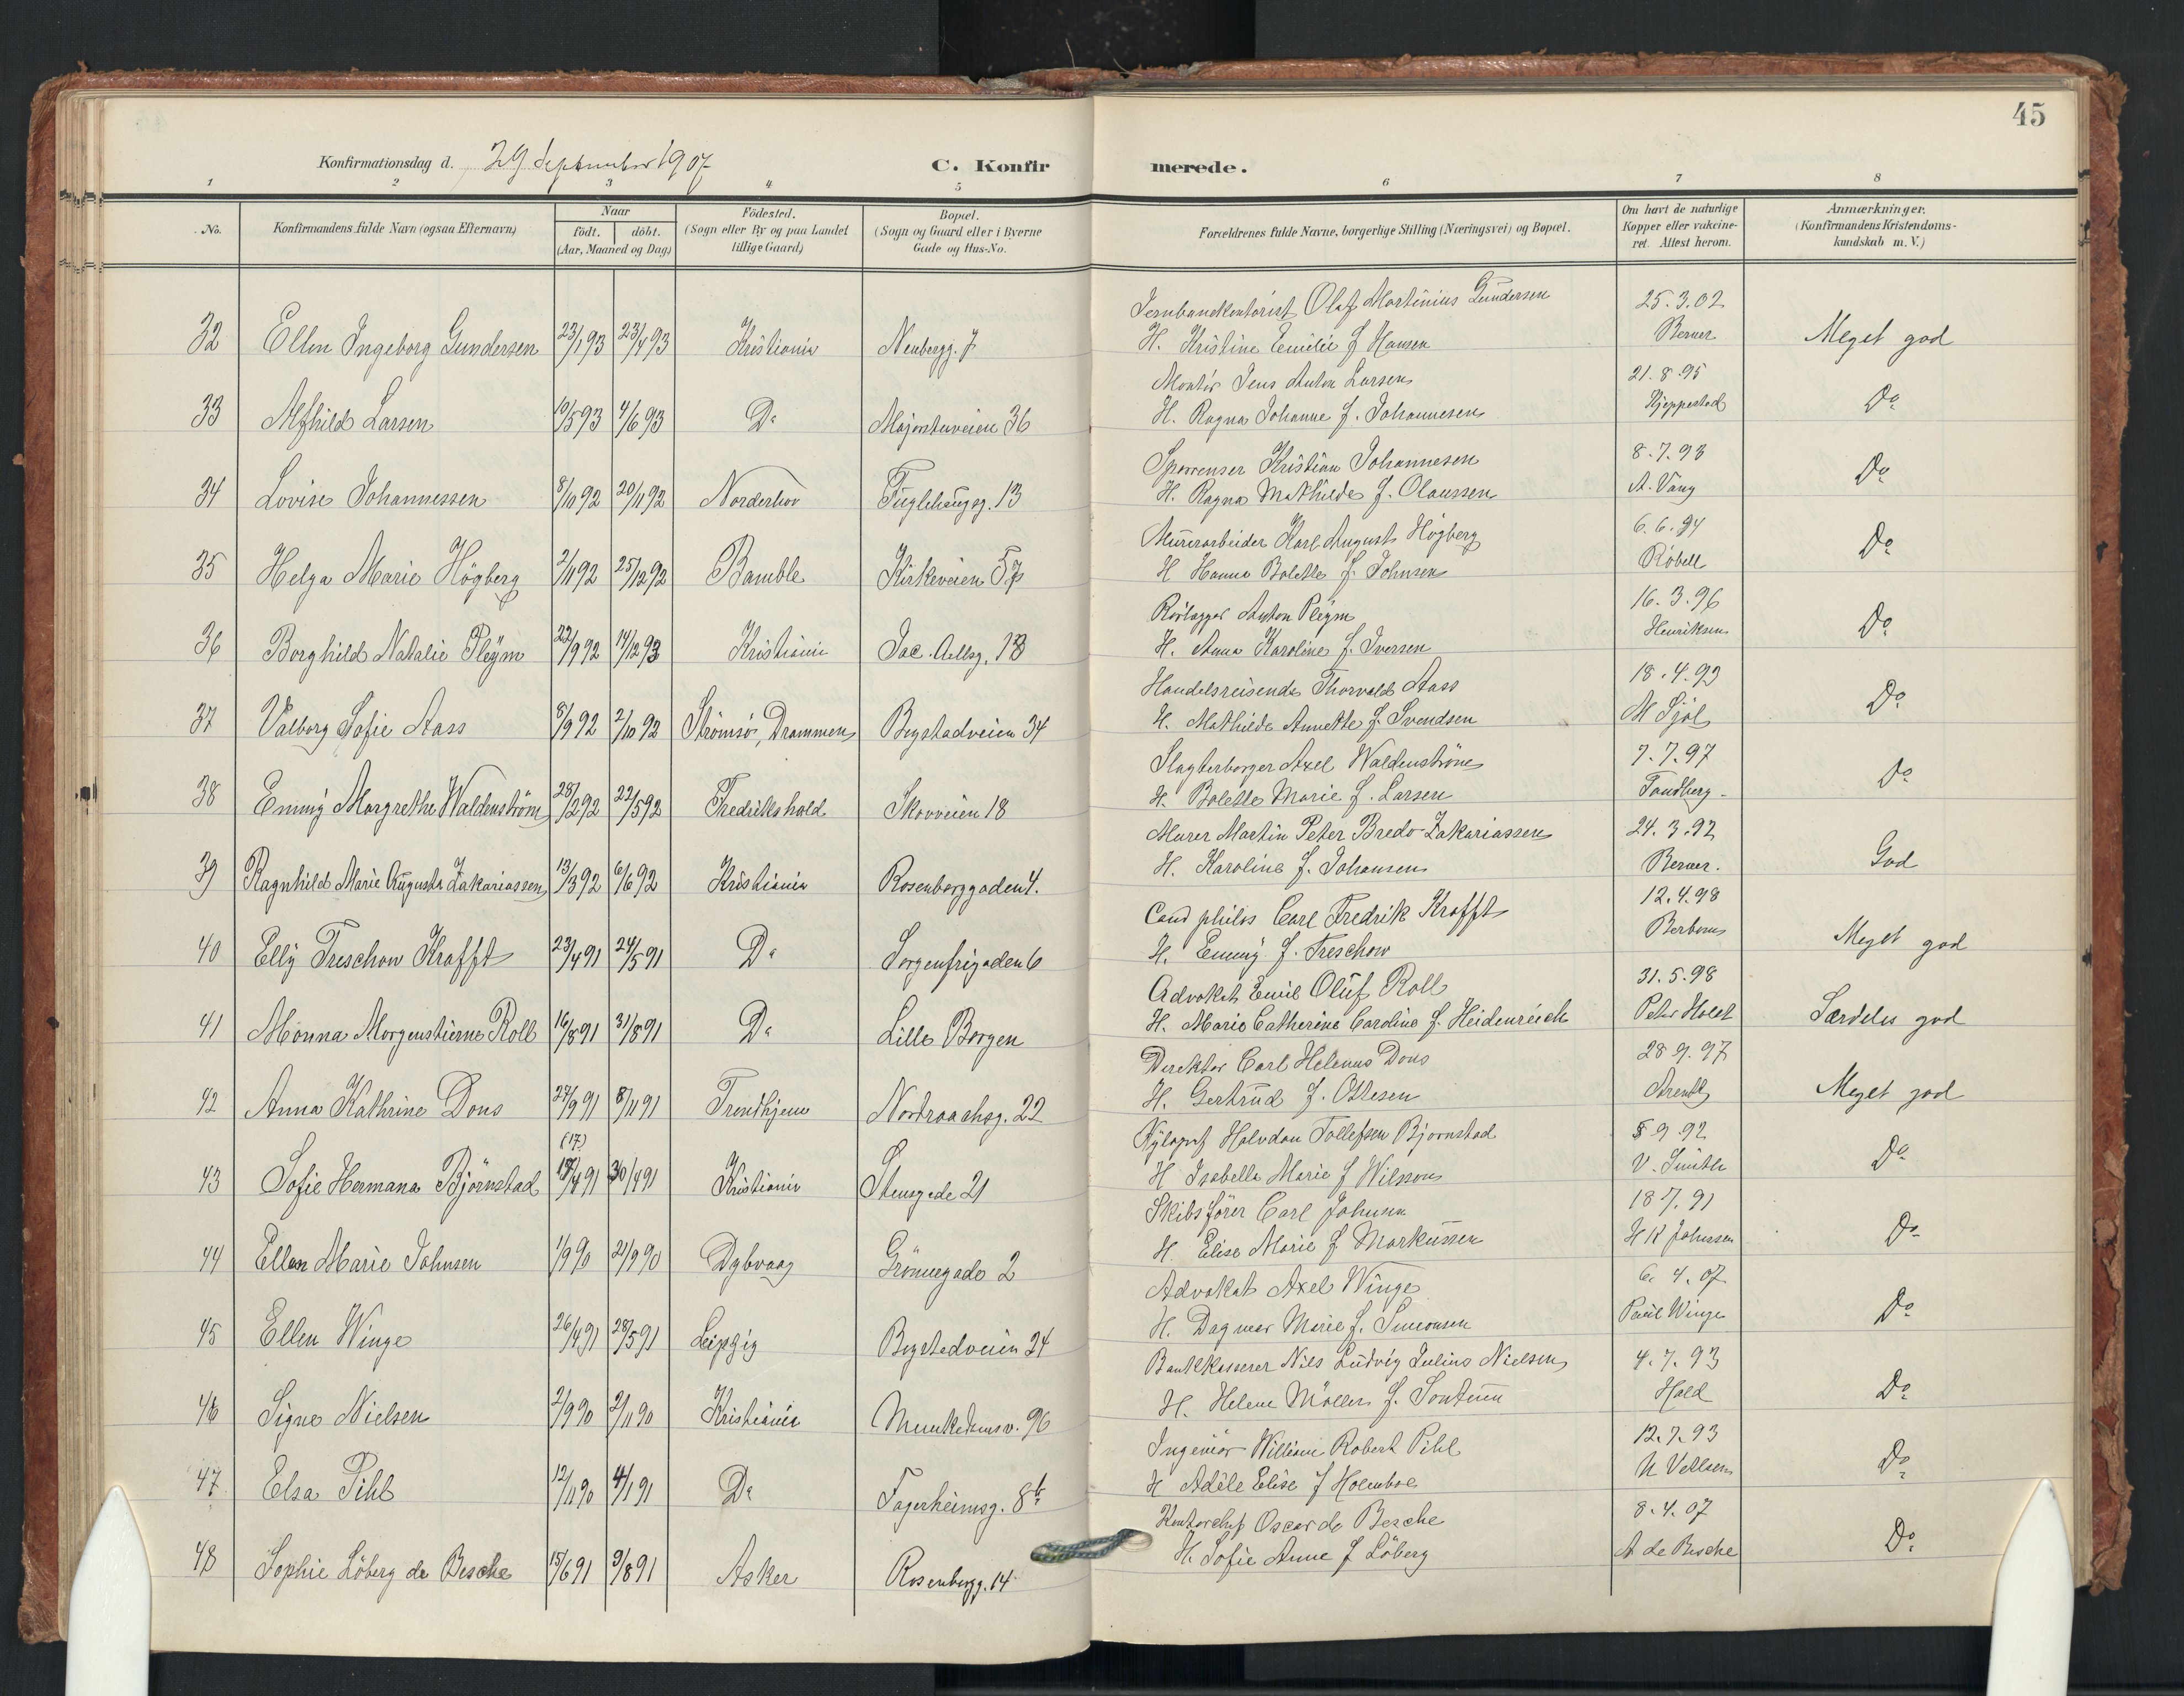 45
Konfirmationsdag d. 29 September 1907
C. Konfirmerede.
1 2 3 4 5 6 7 8
No.
Konfirmandens fulde Navn (ogsaa Efternavn)
Naar
födt. döbt.
(Aar, Maaned og Dag)
Födested.
(Sogn eller By og paa Landet
tillige Gaard)
Bopæl.
(Sogn og Gaard eller i Byerne
Gade og Hus-No.
Forældrenes fulde Navne, borgerlige Stilling (Næringsvei) og Bopæl.
Om havt de naturlige
Kopper eller vakcine-
ret. Attest herom.
Anmærkninger.
(Konfirmandens Kristendoms-
kundskab m. V.)
32 Ellen Ingeborg Gundersen 23/1 93 23/4 93 Kristiania Neubergg. 7
Jernbanekontorist Olaf Martinius Gundersen 25.3.02
H. Kristine Emilie f Hansen Berner Meget god
33 Alfhild Larsen 10/5 93 4/6 93 Do Majorstuveien 36
Montör Jens Anton Larsen 21.8.95
H. Ragna Johanne f. Johannesen Kjeppestad Do
34 Lovise Johannessen 8/10 92 20/11 92 Norderhov Fuglehaugg. 13
Kristian Johannesen 8.7.93
H. Ragna Mathilde f. Olaussen A. Vang Do
35 Helga Marie Högberg 2/11 92 25/12 92 Bamble Kirkeveien 57
Murerarbeider Karl August Högberg 6.6.94
H Hanna Bolette f. Johnsen Robell Do
36 Borghild Natalie Pleym 22/9 92 14/12 93 Kristiania Jac. Aallsg. 18
Rörlægger Anton Pleym 16.3.96
H. Anna Karoline f. Iversen Henriksen Do
37 Valborg Sofie Aass 8/9 92 2/10 92 Strömsö, Drammen Bogstadveien 34
Handelsreisende Thorvald Aass 18.4.93
H. Mathilde Annette f. Svendsen Do
38 Emmy Margrethe Waldenström 28/2 92 22/5 92 Fredrikshald Skovveien 18
Slagterborger Axel Waldenström 7.7.97
H. Bolette Marie f. Larsen Tandberg Do
39 Ragnhild Marie Augusta Zakariassen 13/3 92 6/6 92 Kristiania Rosenborggaden 4.
Murer Martin Peter Bredo Zakariassen 24.3.92
H. Karoline f. Johansen Berner. God
40 Elly Treschow Krafft 23/4 91 24/5 91 Do Sorgenfrigaden 6
Cand philos Carl Fredrik Krafft 12.4.98
H. Emmy f. Treschow Meget god
41 Monna Morgenstierne Roll 16/8 91 31/8 91 Do Lille Borgen
Advokat Emil Oluf Roll 31.5.98
H. Marie Catherine Caroline f. Heidenreich Peter Holst Særdeles god
42 Anna Kathrine Dons 27/9 91 8/11 91 Trondhjem Nordraachsg. 22
Direktör Carl Helenus Dons 28 9.97
H. Gertrud f. Ottesen Arentz Meget god
(17)
43 Sofie Hermana Björnstad /4 91 30/4 91 Kristiania Stensgade 21
Halvdan Tollefsen Bjornstad 9 92
H Isabella Marie f Wilsson V. Smith Do
44 Ellen Marie Johnsen 1/9 90 21/9 90 Dybvaag Grönnegade 2
Skibsförer Carl Johnsen 18 7.91
H. Elise Marie f Markussen H K Johnssen Do
45 Ellen Winge 26/4 91 28/5 91 Leipzig Bogstadveien 24
Advokat Axel Winge 6. 4. 07
H. Dagmar Marie f. Simonsen Paul Winge Do
46 Signe Nielsen 2/9 90 2/11 90 Kristiania Munkedamsv. 96
Bankkasserer Nils Ludvig Julius Nielsen 4.7.93
H. Helene Möller f. Sontum Hald Do
47 Elsa Pihl 12/11 90 4/1 91 Do Fagerheimsg. 8b
Ingeniör William Robert Pihl 12.7.93
H Adéle Elise f Holmboe Do
48 Sophie Löberg de Besche 15/6 91 9/8 91 Asker Rosenborgg. 14
Kontorchef Oscar de Besche 8.4.07
H. Sofie Anne f Löberg A de Besche Do